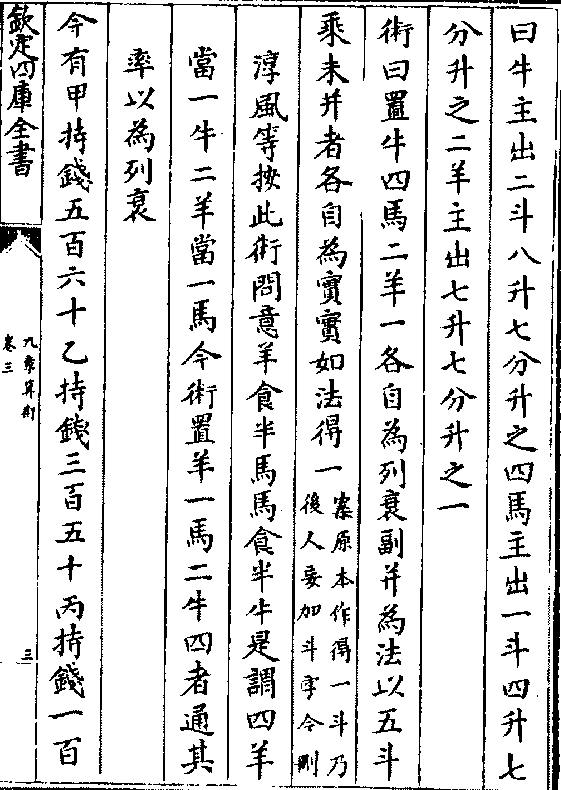 曰牛主出二斗八升七分升之四馬主出一斗四升七
分升之二羊主出七升七分升之一
術曰置牛四馬二羊一各自為列衰副并為法以五斗
乘未并者各自為實實如法得一
案原本作得一斗乃
後人妄加斗字今刪
淳風等按此術問意羊食半馬馬食半牛是謂四羊
當一牛二羊當一馬今術置羊一馬二牛四者通其
率以為列衰
今有甲持錢五百六十乙持錢三百五十丙持錢一百
欽定四庫全書
九章算術
卷三
三